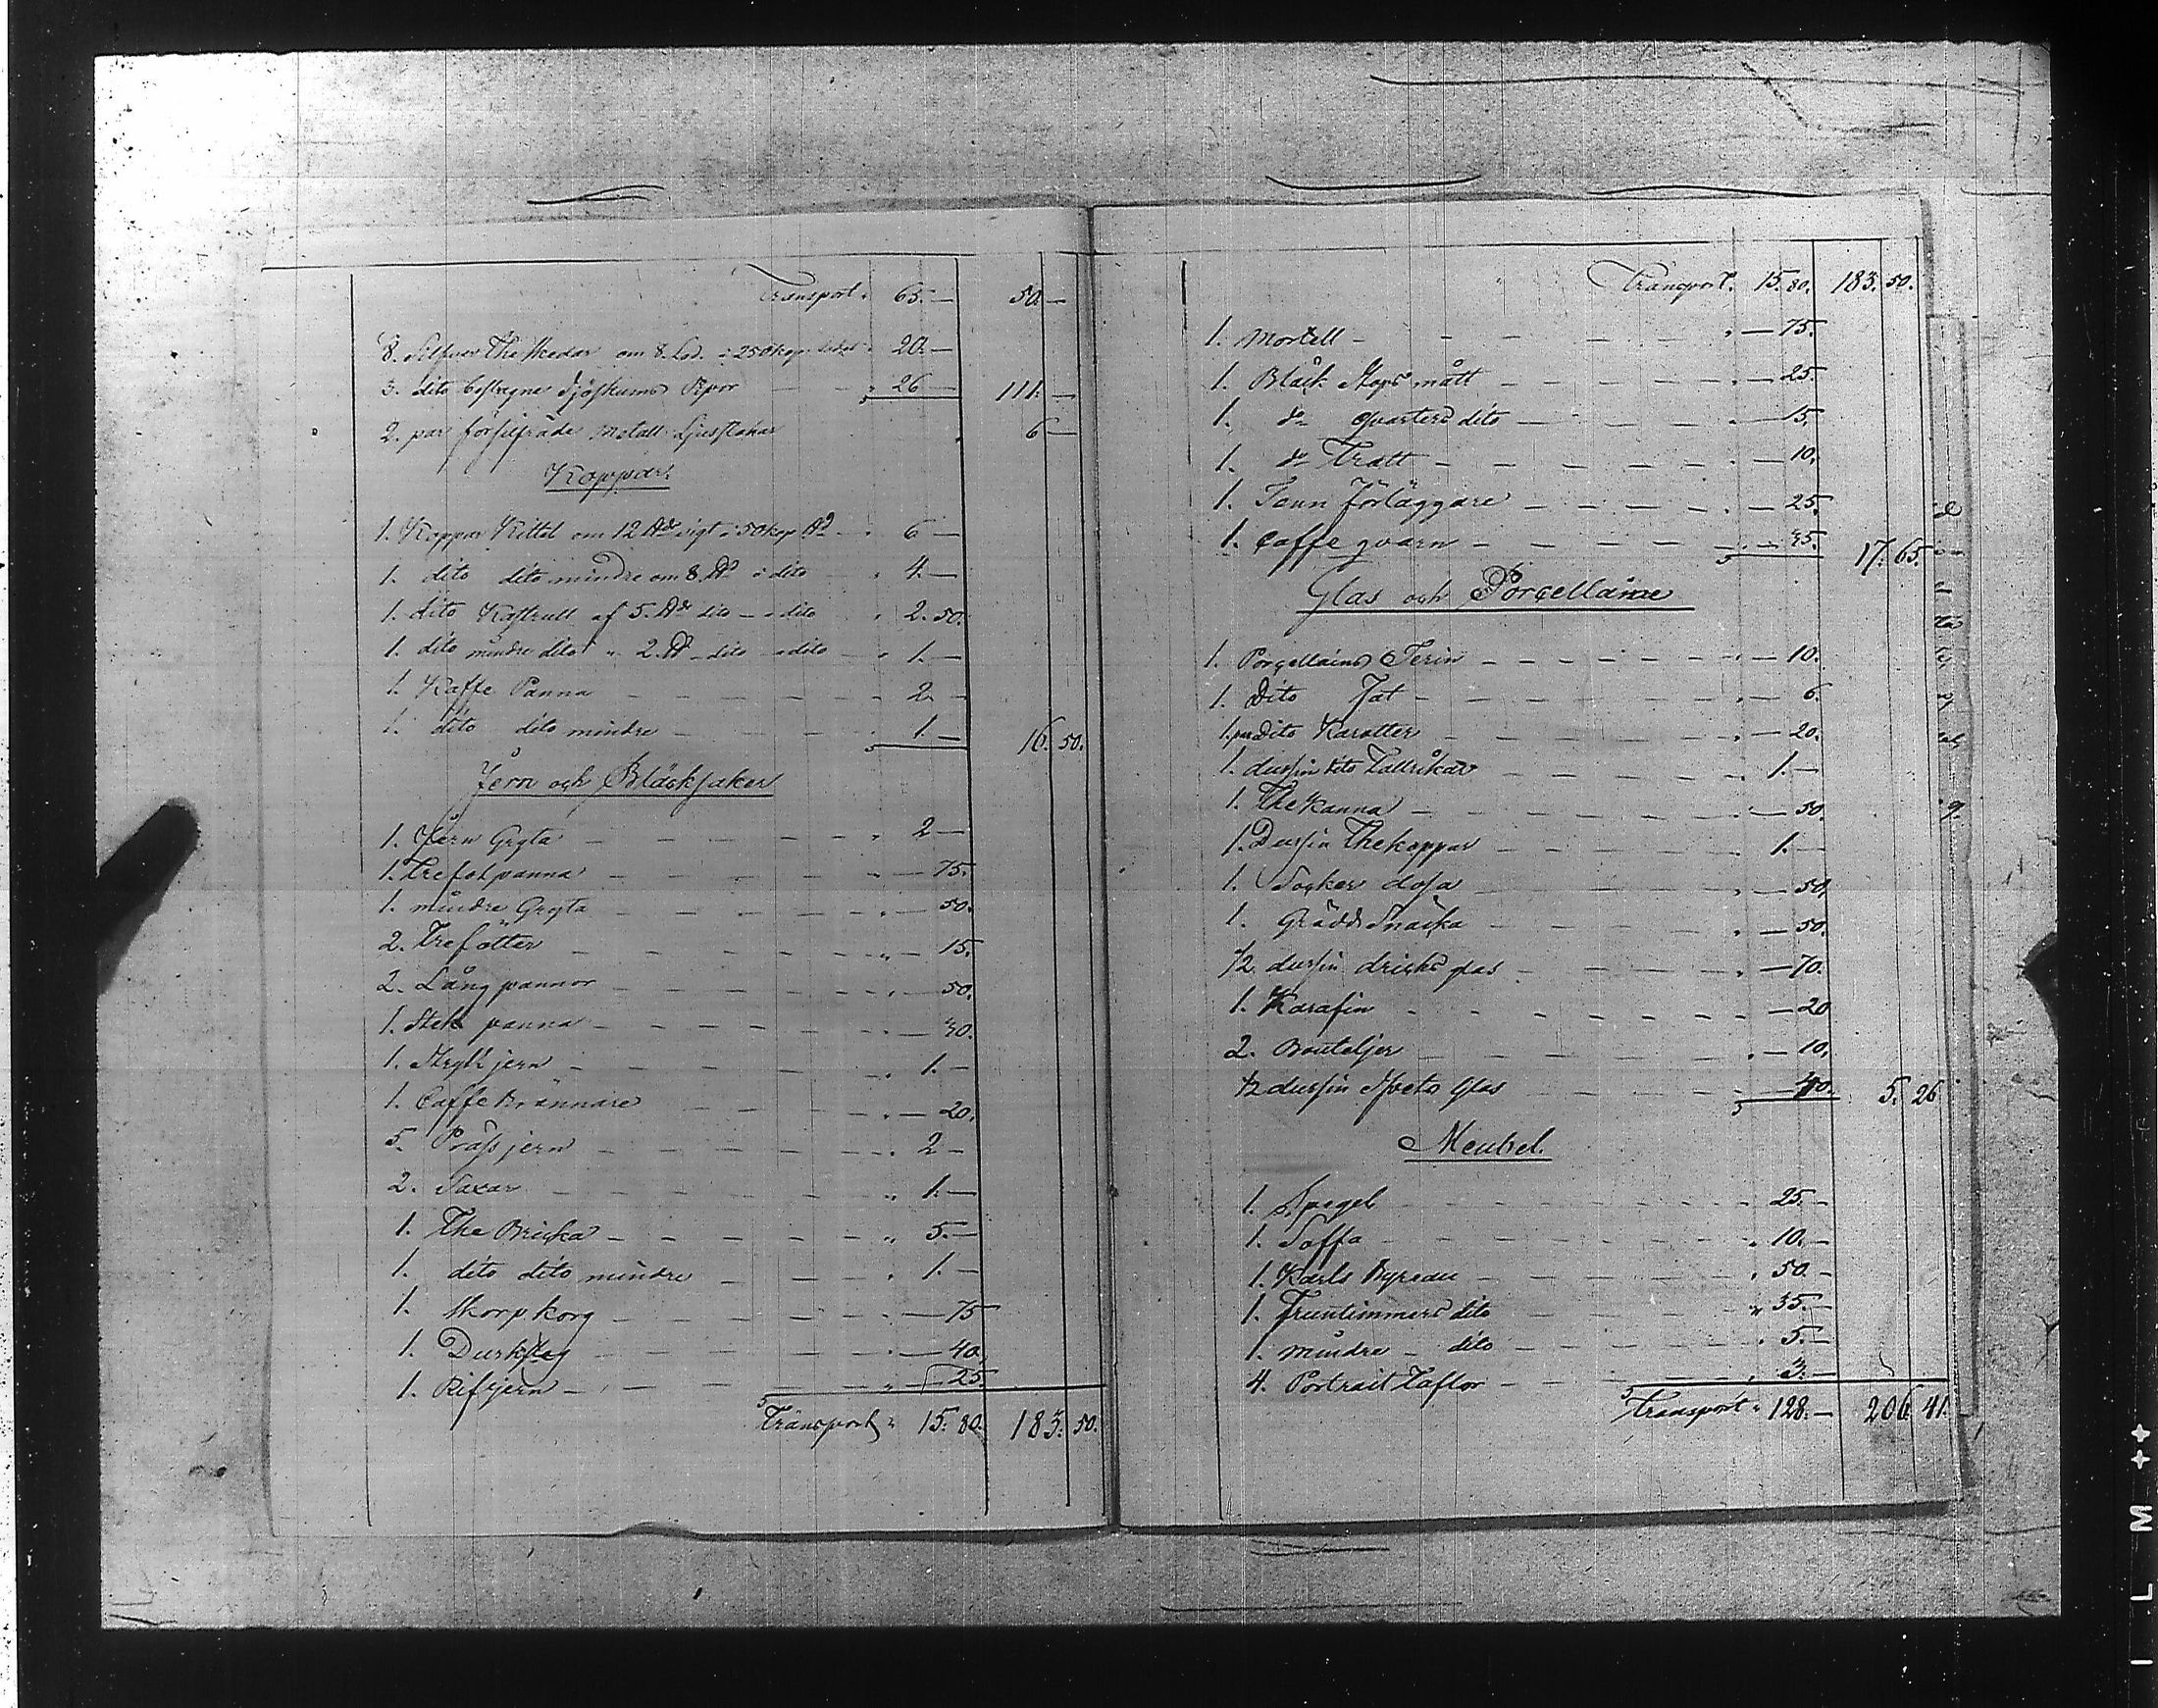 Transport " 65.— 50.—
8. Silfver The Skedar om 8. Lod. à 250 kop. lodet " 20.—
3. dito beslagne Sjöskums Pipor — " 26 — 111.—
2. par försilfrade Metall Ljusstakar " 6 —
Koppar.
1. Koppar Kittel om 12 ℔r vigt à 50 kop ℔ " 6 —
1. dito dito mindre om 8. ℔ à dito " 4.—
1. dito Kastrull af 5. ℔r dito — à dito " 2.50.
1. dito mindre dito " 2. ℔ — dito — à dito " 1.—
1. Kaffe Panna " 2 —
1. dito dito mindre " 1.— 16. 50.
Jern och Bläcksaker
1. Jern Gryta " 2 —
1. Trefot panna " — 75.
1. mindre Gryta " — 50.
2. Trefötter " — 15.
2. Lång pannor " — 50.
1. Stek panna " — 30.
1. Strykjern " 1.—
1. Caffe Brännare " — 20.
5. Prässjern " 2 —
2. Saxar " 1.—
1. The Bricka " 5.—
1. dito dito mindre " 1.—
1. Skorp korg " — 75
1. Durkslag " — 40.
1. Rifjern " — 25.
Transport " 15. 80. 183. 50.
Transport. 15. 80. 183. 50.
1. Mortell " — 75.
1. Bläck Stops mått " — 25.
1. do Qvarters dito " — 15.
1. do Tratt " — 10.
1. Tenn Förläggare " — 25.
1. Caffe qvarn " — 35. 17. 65.
Glas och Porcellaine
1. Porcellains Terin " — 10.
1. Dito Fat " — 6.
1. par dito Karotter " — 20.
1. dussin dito Tallrikar " 1.—
1. The Kanna " — 50.
1. Dussin Thekoppar " 1.—
1. Socker dosa " — 50.
1. Grädd Snäcka " — 50.
1/2 dussin dricks glas " — 70.
1. Karafin " — 20
2. Bouteljer " — 10.
1/2 dussin Spets Glas " — 40. 5. 26
Meubel.
1. Spegel " 25.—
1. Soffa " 10.—
1. Karls Byreau " 50.—
1. Fruntimmers dito " 35.—
1. mindre — dito " 5.—
4. Portrait Taflor " 3.—
Transport " 128.— 206. 41.